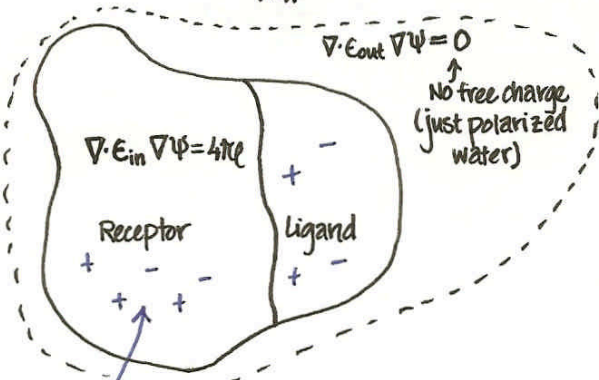 ∇·ϵout ∇Ψ=0
No free charge
(just polarized
water)
∇·ϵin ∇Ψ=4πρ
Receptor
Ligand
+ -
+ - -
+ +
+ -